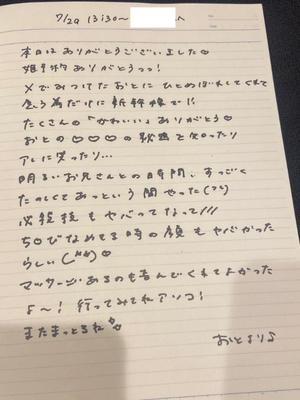 7/29 13:30~ へ
本日はありがとうございました♡
ありがとうっっ!
Xでみつけたおとにひとめぼれしてくれて
会う為だけに新幹線で!!
たくさんの「かわいい」ありがとう♡
おとの♡♡♡の話題と笑ったり
アレに笑ったり...
明るいお兄さんとの時間、すっごく
たのしくてあっという間やった(??)
必殺技もヤバッてなって///
ち○びなめてる時の顔もヤバかった
らしい
マッサージあるのも喜んでくれてよかった
よ~!行ってみてねアソコ!
またまっとるね
おとより♪